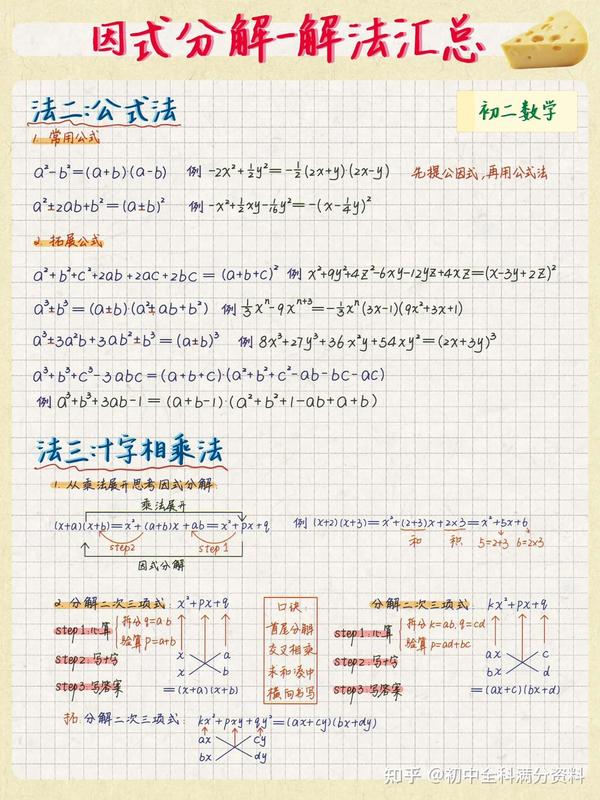 因式分解-解法汇总
法二:公式法
初二数学
1. 常用公式
a²-b²=(a+b)·(a-b) 例 -2x²+½y²=-½(2x+y)·(2x-y) 先提公因式,再用公式法
a²±2ab+b²=(a±b)² 例 -x²+½xy-1/16y²=-(x-¼y)²
2. 拓展公式
a²+b²+c²+2ab+2ac+2bc=(a+b+c)² 例 x²+9y²+4z²-6xy-12yz+4xz=(x-3y+2z)²
a³±b³=(a±b)·(a²±ab+b²) 例 ⅓xⁿ-9xⁿ⁺³=-⅓xⁿ(3x-1)(9x²+3x+1)
a³±3a²b+3ab²±b³=(a±b)³ 例 8x³+27y³+36x²y+54xy²=(2x+3y)³
a³+b³+c³-3abc=(a+b+c)·(a²+b²+c²-ab-bc-ac)
例 a³+b³+3ab-1=(a+b-1)·(a²+b²+1-ab+a+b)
法三:十字相乘法
1. 从乘法展开思考因式分解
乘法展开
(x+a)(x+b)=x²+(a+b)x+ab=x²+px+q
step2 step1
因式分解
例 (x+2)(x+3)=x²+(2+3)x+2×3=x²+5x+6
和 积 5=2+3 6=2×3
2. 分解二次三项式: x²+px+q
step1.心算 拆分 q=a·b
验算 p=a+b
step2.写十字
x a
x b
step3.写答案 =(x+a)(x+b)
口诀:
首尾分解
交叉相乘
求和凑中
横向书写
分解二次三项式 kx²+px+q
step1.心算 拆分 k=ab, q=cd
验算 p=ad+bc
step2.写十字
ax c
bx d
step3.写答案 =(ax+c)(bx+d)
拓.分解二次三项式: kx²+pxy+qy²=(ax+cy)(bx+dy)
ax cy
bx dy
知乎 @初中全科满分资料